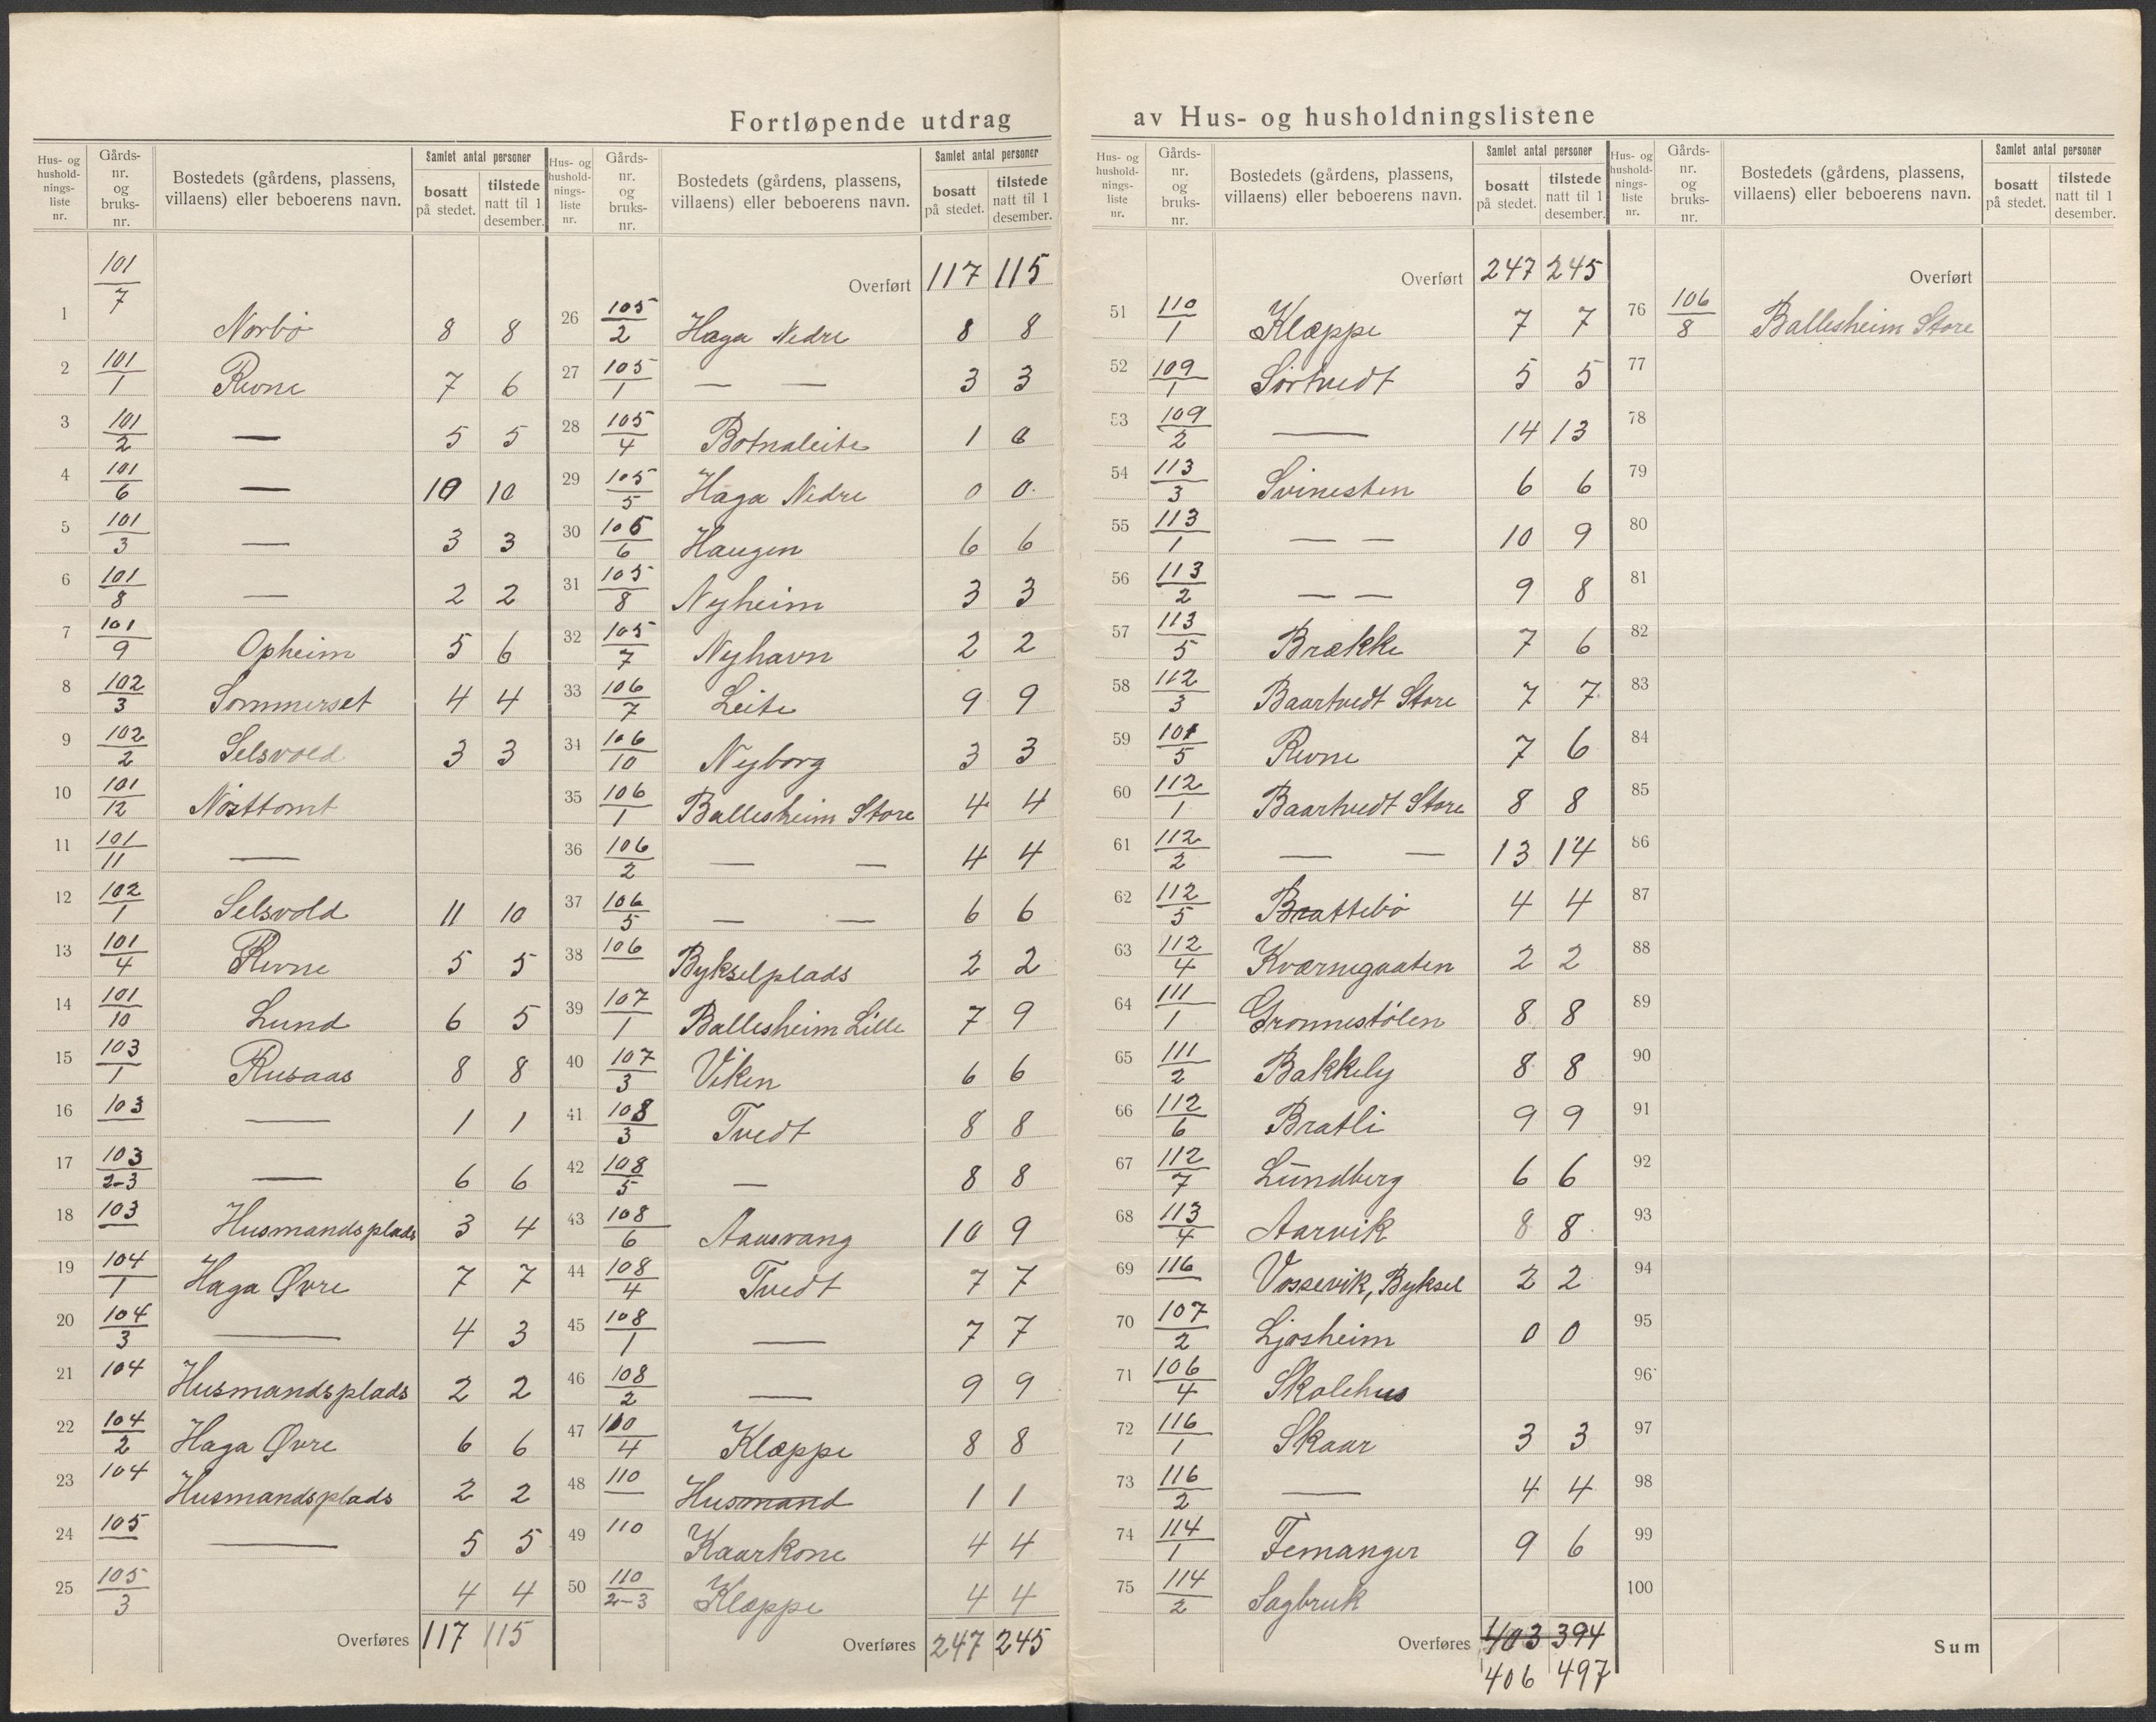 Fortløpende utdrag av Hus- og husholdningslistene
Hus- og husholdnings- liste nr. | Gårds- nr. og bruks- nr. | Bostedets (gårdens, plassens, villaens) eller beboerens navn. | Samlet antal personer | bosatt på stedet. | tilstede natt til 1 desember.
1 101/7 Norbø 8 8
2 101/1 Revne 7 6
3 101/2 — 5 5
4 101/6 — 10 10
5 101/3 — 3 3
6 101/8 — 2 2
7 101/9 Opheim 5 6
8 102/3 Sommerset 4 4
9 102/2 Selsvold 3 3
10 101/12 Nøsttomt
11 101/11 —
12 102/1 Selsvold 11 10
13 101/4 Revne 5 5
14 101/10 Lund 6 5
15 103/1 Rusaas 8 8
16 103 — 1 1
17 103/2-3 — 6 6
18 103 Husmandsplads 3 4
19 104/1 Haga Øvre 7 7
20 104/3 — 4 3
21 104 Husmandsplads 2 2
22 104/2 Haga Øvre 6 6
23 104 Husmandsplads 2 2
24 105 — 5 5
25 105/3 4 4
Overføres 117 115
Hus- og husholdnings- liste nr. | Gårds- nr. og bruks- nr. | Bostedets (gårdens, plassens, villaens) eller beboerens navn. | Samlet antal personer | bosatt på stedet. | tilstede natt til 1 desember.
Overført 117 115
26 105/2 Haga Nedre 8 8
27 105/1 — — 3 3
28 105/4 Botnaleite 1 0
29 105/5 Haga Nedre 0 0
30 105/6 Haugen 6 6
31 105/8 Nyheim 3 3
32 105/7 Nyhavn 2 2
33 106/7 Leite 9 9
34 106/10 Nyborg 3 3
35 106/1 Ballesheim Store 4 4
36 106/2 — — 4 4
37 106/5 — — 6 6
38 106 Bykselplads 2 2
39 107/1 Ballesheim Lille 7 9
40 107/3 Viken 6 6
41 108/3 Tvedt 8 8
42 108/5 — 8 8
43 108/6 Aausvang 10 9
44 108/4 Tvedt 7 7
45 108/1 — 7 7
46 108/2 — 9 9
47 110/4 Klæppe 8 8
48 110 Husmand 1 1
49 110 Kaarkone 4 4
50 110/2-3 Klæppe 4 4
Overføres 247 245
Hus- og husholdnings- liste nr. | Gårds- nr. og bruks- nr. | Bostedets (gårdens, plassens, villaens) eller beboerens navn. | Samlet antal personer | bosatt på stedet. | tilstede natt til 1 desember.
Overført 247 245
51 110/1 Klæppe 7 7
52 109/1 Sørtvedt 5 5
53 109/2 — 14 13
54 113/3 Svinesten 6 6
55 113/1 — — 10 9
56 113/2 — — 9 8
57 113/5 Brække 7 6
58 112/3 Baartvedt Store 7 7
59 101/5 Revne 7 6
60 112/1 Baartvedt Store 8 8
61 112/2 — — 13 14
62 112/5 Brattebø 4 4
63 112/4 Kværnegaaten 2 2
64 111/1 Grønnestølen 8 8
65 111/2 Bakkely 8 8
66 112/6 Bratli 9 9
67 112/7 Lundberg 6 6
68 113/4 Aarvik 8 8
69 116 Vossevik, Byksel 2 2
70 107/2 Ljosheim 0 0
71 106/4 Skolehus
72 116/1 Skaar 3 3
73 116/2 — 4 4
74 114/1 Femanger 9 6
75 114/2 Sagbruk
Overføres 403 394
406 497
Hus- og husholdnings- liste nr. | Gårds- nr. og bruks- nr. | Bostedets (gårdens, plassens, villaens) eller beboerens navn. | Samlet antal personer | bosatt på stedet. | tilstede natt til 1 desember.
Overført
76 106/8 Ballesheim Store
77
78
79
80
81
82
83
84
85
86
87
88
89
90
91
92
93
94
95
96
97
98
99
100
Sum